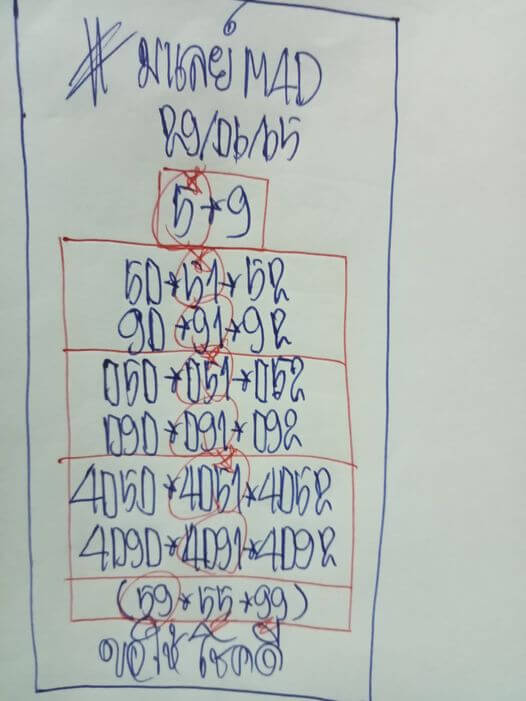 # มนลย์ M4D
29/06/65
5*9
50*51*52
90*91*92
050*051*052
090*091*092
4050*4051*4052
4090*4091*4092
(59*55*99)
ขอให้โชคดี